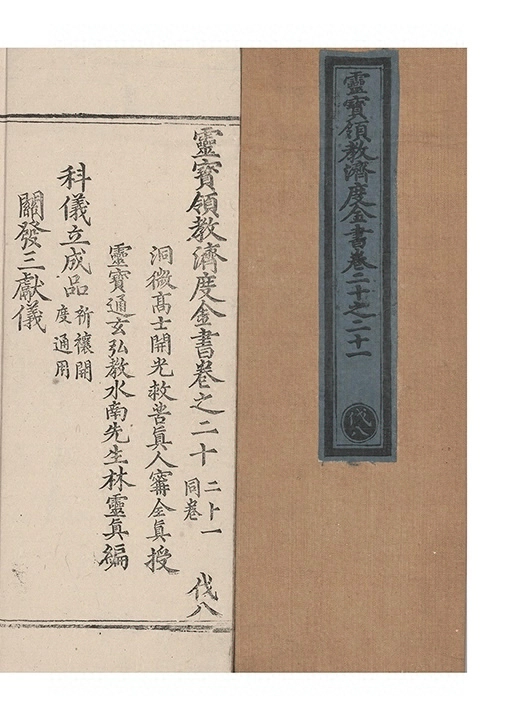 靈寶領教濟度金書卷二十之二十一
伐八
靈寶領教濟度金書卷之二十
二十一
同卷
伐八
洞微高士開光救苦眞人寗全眞授
靈寶通玄弘教水南先生林靈眞編
科儀立成品
祈禳開
度通用
關發三獻儀